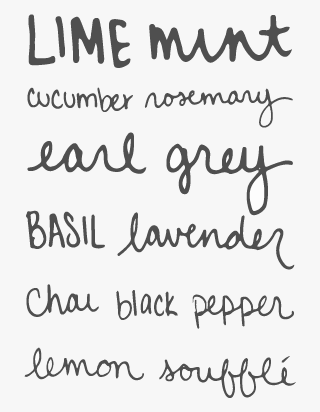 LIME mint
cucumber rosemary
earl grey
BASIL lavender
Chai black pepper
lemon soufflé